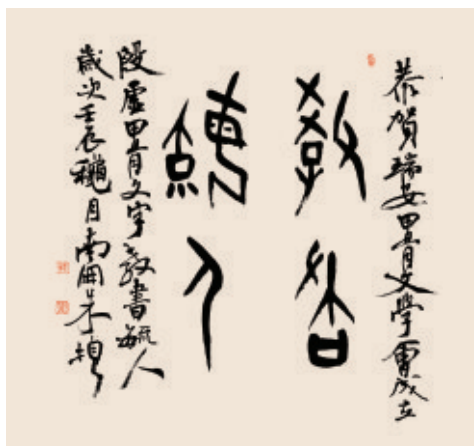 恭賀瑞安甲骨文學會成立
教書
毓人
殷虛甲骨文字教書毓人
歲次壬辰龝月南開朱